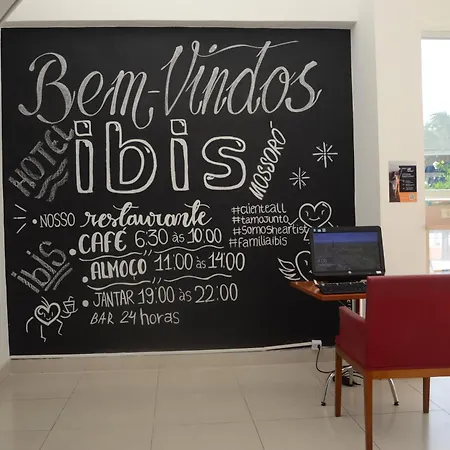 Bem-Vindos
HOTEL
ibis
MOSSORÓ
• NOSSO restaurante
• CAFÉ 6:30 às 10:00
• ALMOÇO 11:00 às 14:00
• JANTAR 19:00 às 22:00
BAR 24 horas
ibis
#clienteall
#tamojunto
#somosheartist
#familiaibis